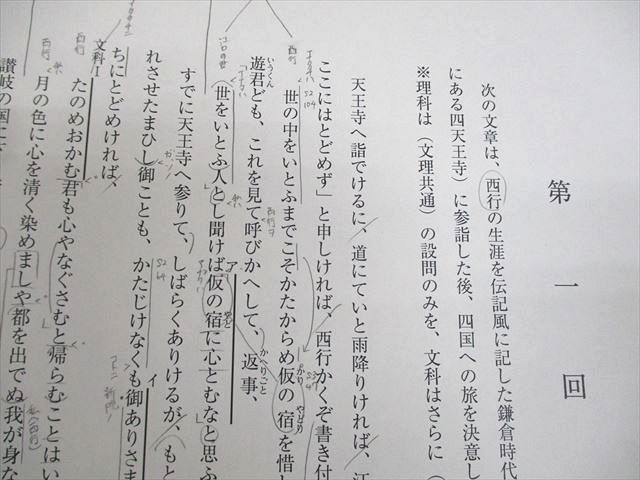 第一回
次の文章は、西行の生涯を伝記風に記した鎌倉時代
にある四天王寺)に参詣した後、四国への旅を決意し
※理科は(文理共通)の設問のみを、文科はさらに(
天王寺へ詣でけるに、道にていと雨降りければ、江
ここにはとどめず」と申しければ、西行かくぞ書き付
世の中をいとふまでこそかたからめ仮の宿を惜し
かり
やどり
遊君ども、これを見て呼びかへして、返事、
いうくん
かへりごと
世をいとふ人とし聞けば仮の宿に心とむなと思ふ
やど
ア
すでに天王寺へ参りて、しばらくありけるが、もと
れさせたまひし御ことも、かたじけなくも御ありさま
イ
ちにとどめければ、
文科Ⅰ
たのめおかむ君も心やなぐさむと帰らむことはい
月の色に心を清く染めましや都を出でぬ我が身な
讃岐の国に
西行
西行
西行